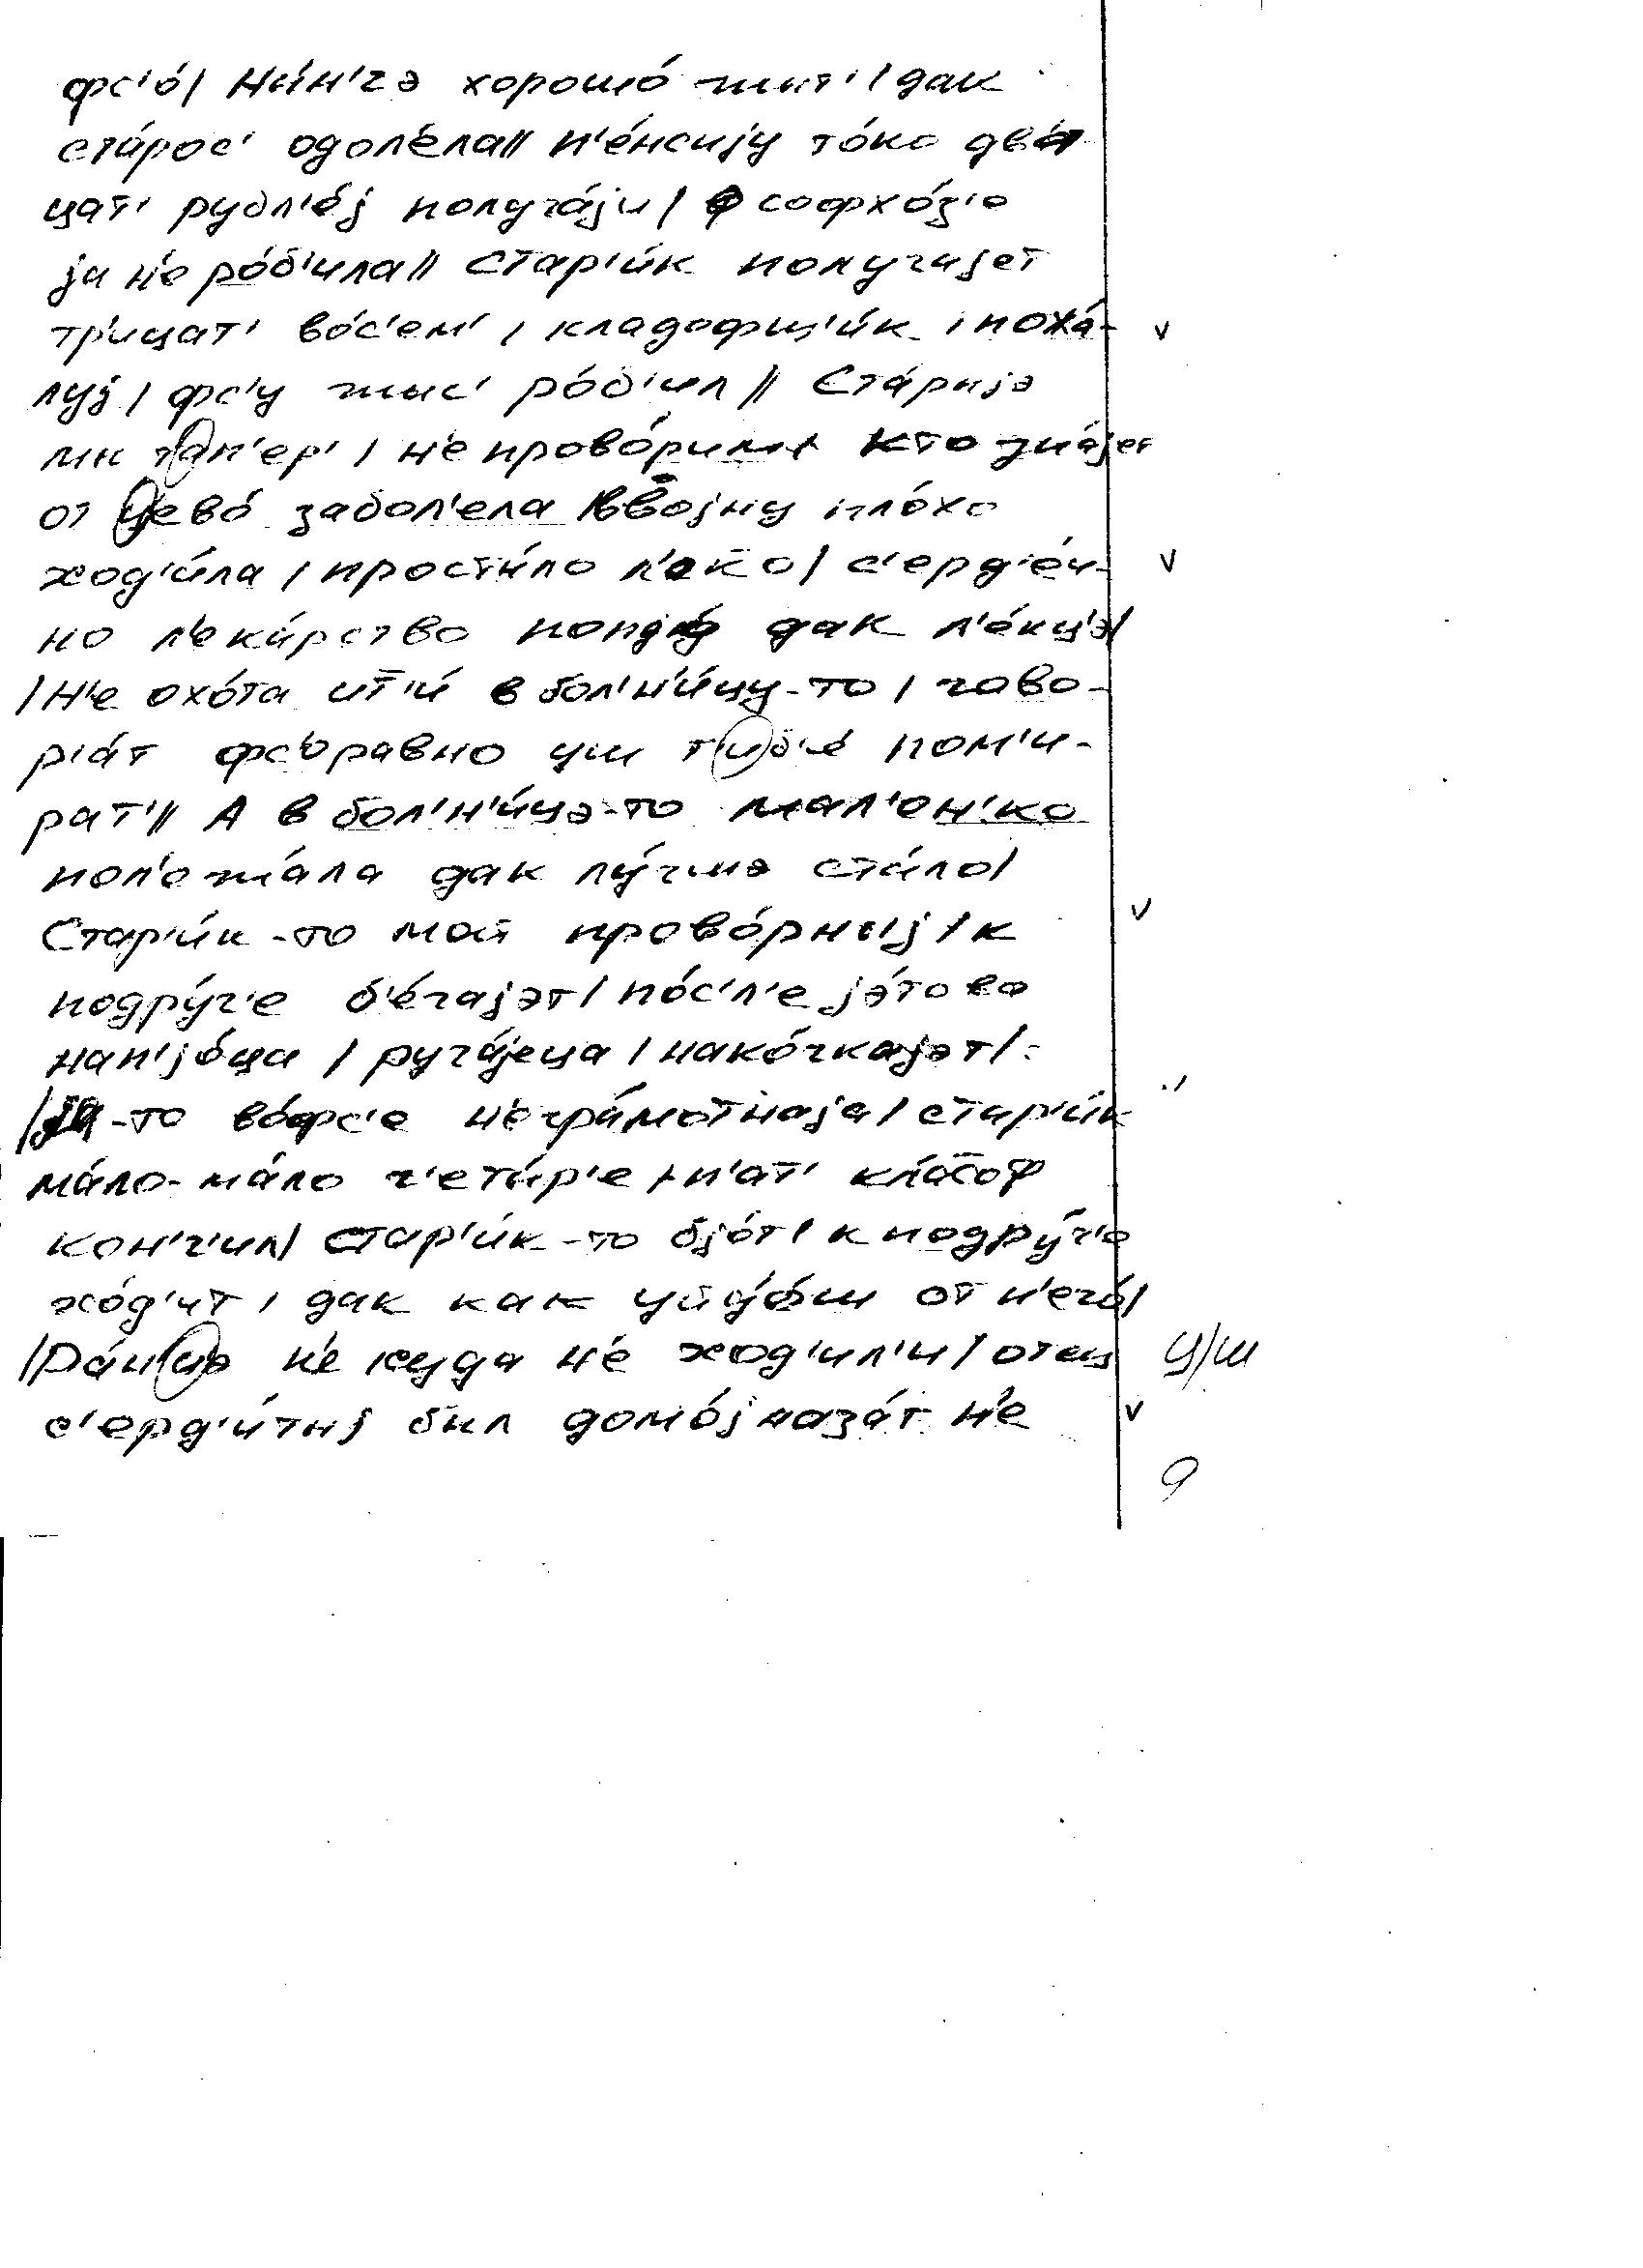 фс'о́/ Ны́н'чэ хорошо́ жыт'/ дак
ста́рос' одол'е́ла// п'е́нсиjу то́ко два́
цат' рубл'е́j получа́jу/ ф софхо́з'е
jа н'е ро́б'ила// Стар'и́к получаjет
тр'и́цат' во́с'ем', кладофщ'и́к, пожа́-
луj/ фс'у жыс' ро́б'ил// Ста́рыjэ
мы тап'ер'/ н'е прово́рныjе кто зна́jет
от чево́ забол'ела в во́jну пло́хо
ход'и́ла/ просты́ло л'око/ с'ерд'е́ч-
но л'ека́рство попjу́ дак л'е́кчэ/
/Н'е охо́та ит'и́ в бол'н'и́цу-то/ гово-
р'а́т фс'оравно уш т'иб'е́ пом'и-
рат'// А в бол'н'и́цэ-то мал'ен'ко
пол'ежа́ла дак лу́чшэ ста́ло/
Стар'и́к-то мой прово́рныj/ к
подру́г'е б'е́гаjэт/ по́с'л'е jэ́тово
нап'jо́ца/ руга́jеца/ нако́чкаjэт/:
/jа-то во́фс'е н'егра́мотнаjа/ стар'и́к
ма́ло-ма́ло ч'еты́р'е/ п'ат' кла́соф
кон'ч'ил/ стар'и́к-то бjот/ к подру́г'е
хо́д'ит, дак как уйд'о́ш от н'его́/
/Ра́ншэ н'е куда н'е ход'ил'и/ отец ц/ш
с'ерд'и́тыj был домо́j наза́т н'е
9